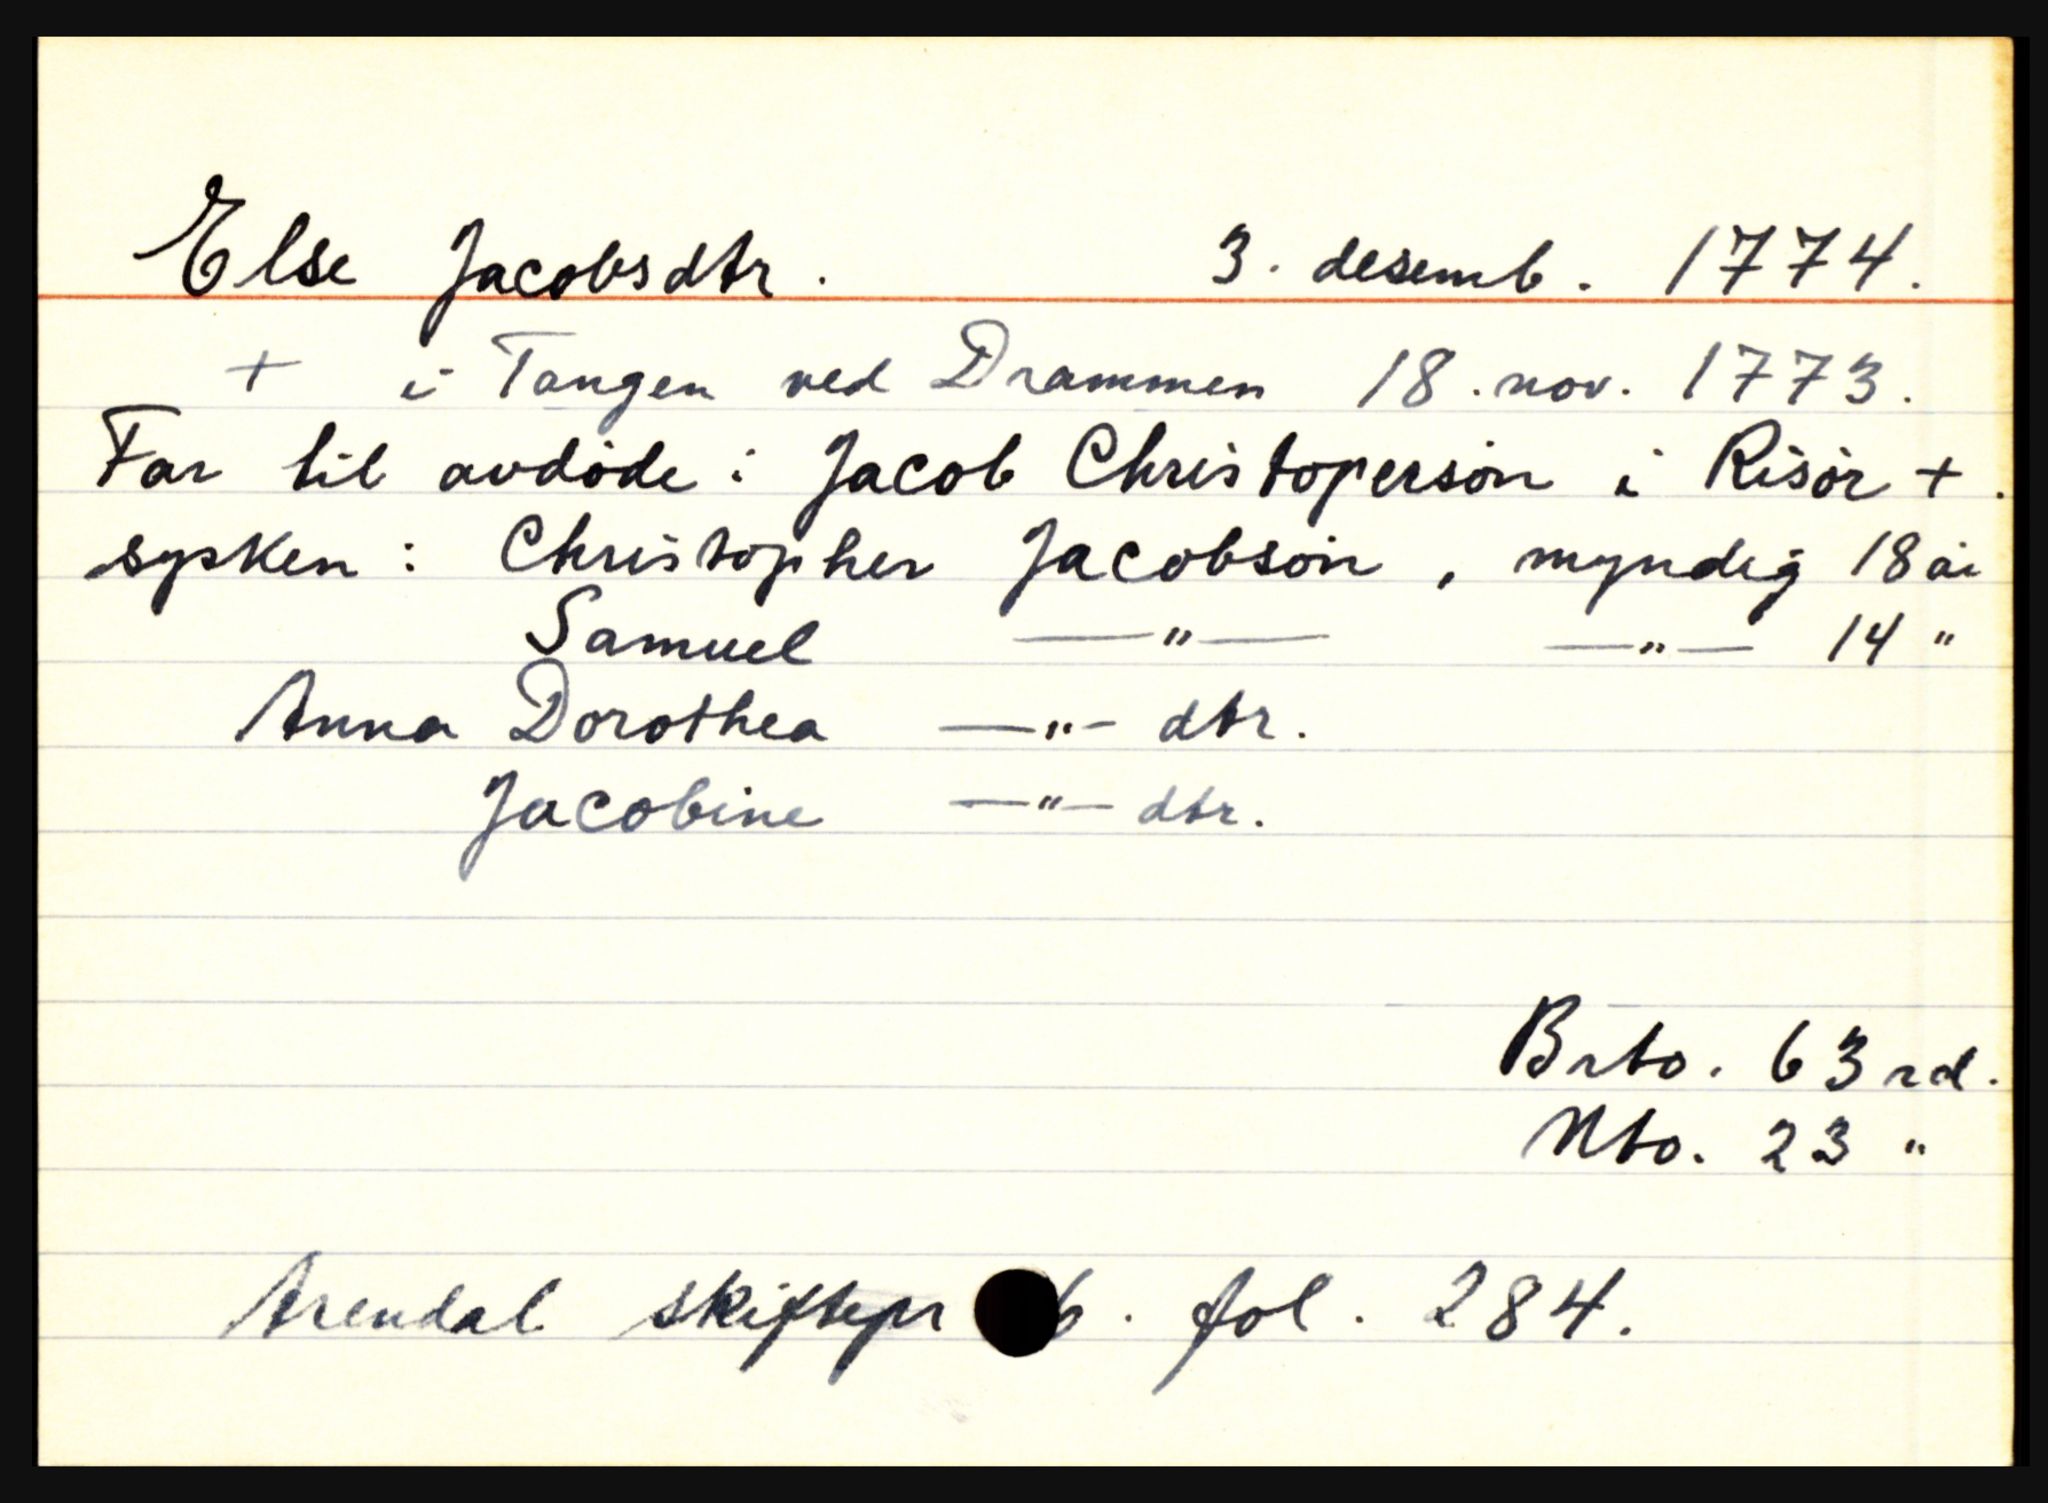 Else Jacobsdtr. 3. desemb. 1774.
+ i Tangen ved Drammen 18. nov. 1773.
Far til avdöde: Jacob Christopersön i Risör +.
sysken: Christopher Jacobsön, myndig 18 år
Samuel —"— —"— 14 "
Anna Dorothea —"— dtr.
Jacobine —"— dtr.
Brto. 63 rd.
Nto. 23 "
Arendal skiftepr 6. fol. 284.